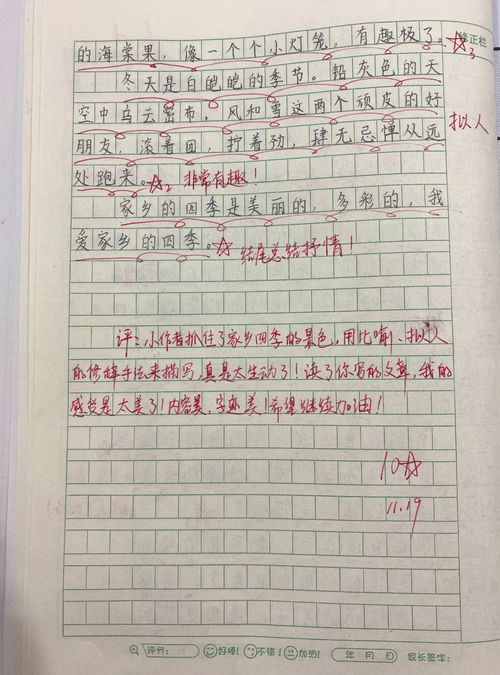 的海棠果，像一个个小灯笼，有趣极了。☆3 修正栏
冬天是白皑皑的季节。铅灰色的天
空中乌云密布，风和雪这两个顽皮的好 拟人
朋友，滚着团，拧着劲，肆无忌惮从远
处跑来。☆2 非常有趣！
家乡的四季是美丽的，多彩的，我
爱家乡的四季。☆ 结尾总结抒情！
评：小作者抓住了家乡四季的景色，用比喻、拟人
的修辞手法来描写，真是太生动了！读了你写的文章，我的
感受是太美了！内容美，字迹美！希望继续加油！
10☆
11.19
评分： 好棒！ 不错！ 加油！ 年 月 日 家长签字：